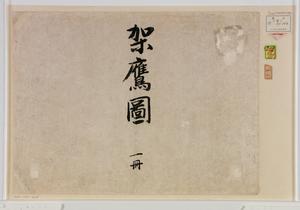 架鷹圖
一冊